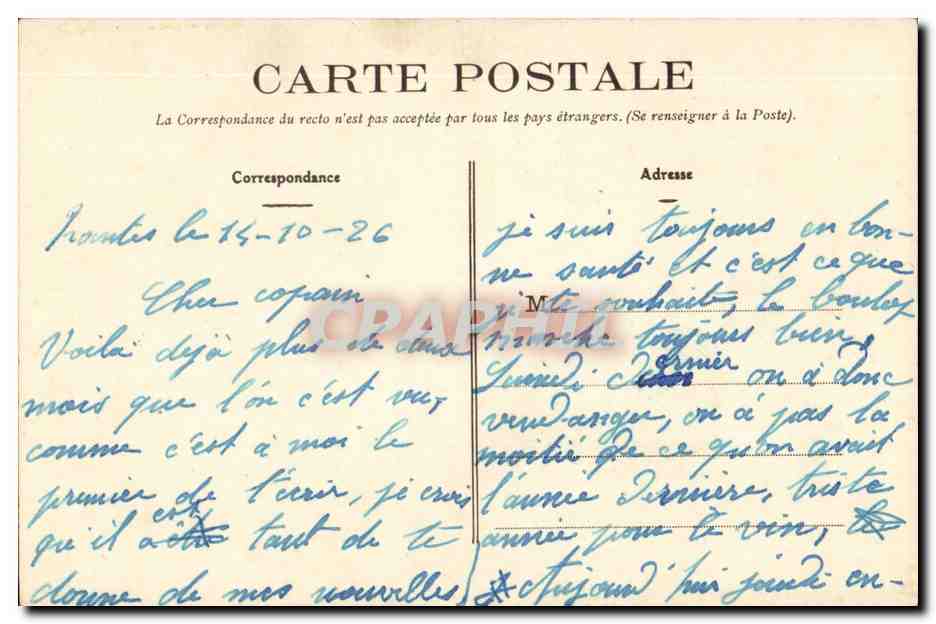 CARTE POSTALE
La Correspondance du recto n'est pas acceptée par tous les pays étrangers. (Se renseigner à la Poste).
Correspondance
Nantes le 14-10-26
Cher copain
Voilà déjà plus de deux
mois que l'on c'est vu,
comme c'est à moi le
premier de t'écrir, je crois
qu'il est tant de te
donne de mes nouvelles
Adresse
je suis toujours en bon-
ne santé et c'est ce que
M
je te souhaite, le boulot
marche toujours bien,
Lundi dernier on à donc
vendanger, on à pas la
moitié de ce qu'on avait
l'année dernière, triste
année pour le vin,
Aujourd'hui jeudi en-
CPAPHIL